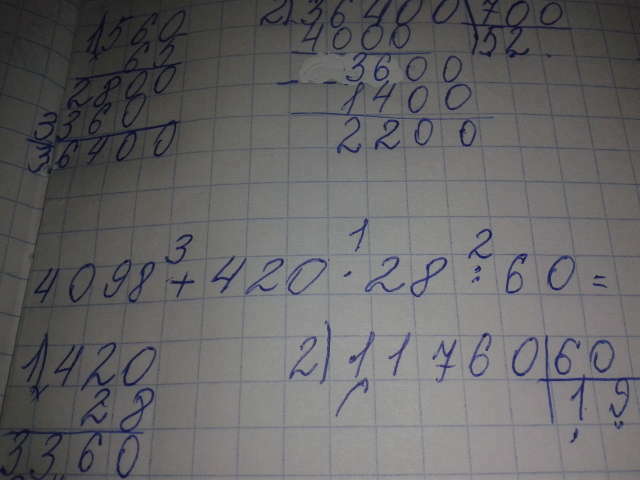 1) 560
65
2800
3360
36400
2) 36400 | 700
4000 | 52
3600
1400
2200
3 1 2
4098 + 420 · 28 : 60 =
1) 420
28
3360
2) 11760 | 60
19